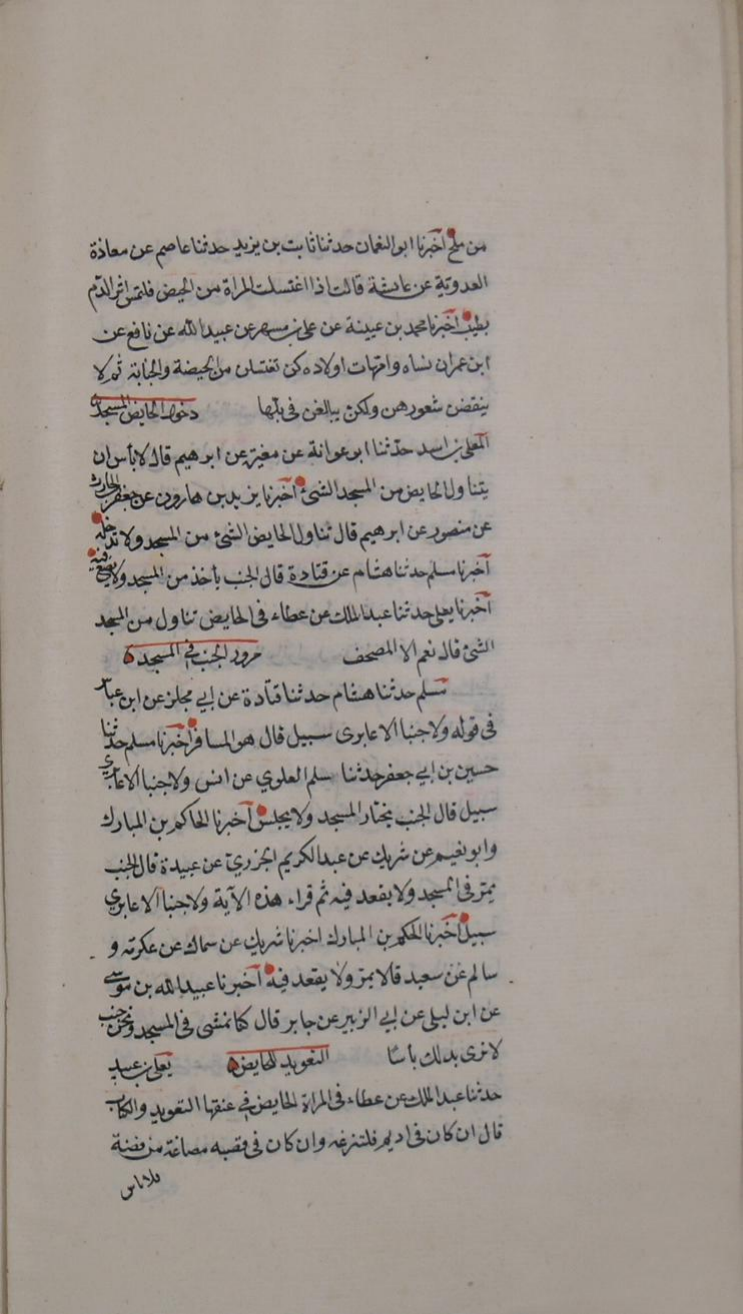 من ملح اخبرنا ابو النعمان حدثنا ثابت بن يزيد حدثنا عاصم عن معاذة
العدوية عن عايشة قالت اذا اغتسلت المراة من الحيض فلتمس اثر الدم
بطيب اخبرنا محمد بن عيينة عن علي بن مسهر عن عبيد الله عن نافع عن
ابن عمر ان نساه وامهات اولاده كن تغتسلن من الحيضة والجنابة ثم لا
ينقضن شعورهن ولكن يبالغن في بلها دخول الحايض المسجد
المعلى بن اسد حدثنا ابو عوانة عن مغيرة عن ابرهيم قال لا باس ان
يتناول الحايض من المسجد الشئ اخبرنا يزيد بن هارون عن جعفر بن الحارث
عن منصور عن ابرهيم قال تناول الحايض الشئ من المسجد ولا تدخله
اخبرنا مسلم حدثنا هشام عن قتادة قال الجنب ياخذ من المسجد ولا يضع فيه
اخبرنا يعلى حدثنا عبد الملك عن عطاء في الحايض تناول من المسجد
الشئ قال نعم الا المصحف مرور الجنب في المسجد
مسلم حدثنا هشام حدثنا قتادة عن ابي مجلز عن ابن عباس
في قوله ولا جنبا الا عابري سبيل قال هو المسافر اخبرنا مسلم حدثنا
حسين بن ابي جعفر حدثنا سلم العلوي عن انس ولا جنبا الا عابري
سبيل قال الجنب يجتاز المسجد ولا يجلس اخبرنا الحاكم بن المبارك
وابو نعيم عن شريك عن عبد الكريم الجزري عن عبيدة قال الجنب
يمر في المسجد ولا يقعد فيه ثم قراء هذه الآية ولا جنبا الا عابري
سبيل اخبرنا الحكم بن المبارك اخبرنا شريك عن سماك عن عكرمة و
سالم عن سعيد قالا يمر ولا يقعد فيه اخبرنا عبيد الله بن موسى
عن ابن ليلى عن ابي الزبير عن جابر قال كنا نمشي في المسجد ونحن جنب
لا نرى بذلك باسًا التعويذ للحايض يعلى بن عبيد
حدثنا عبد الملك عن عطاء في المراة الحايض في عنقها التعويذ والكتاب
قال ان كان في اديم فلتنزعه وان كان في قصبه مصاغة من فضة
فلا باس